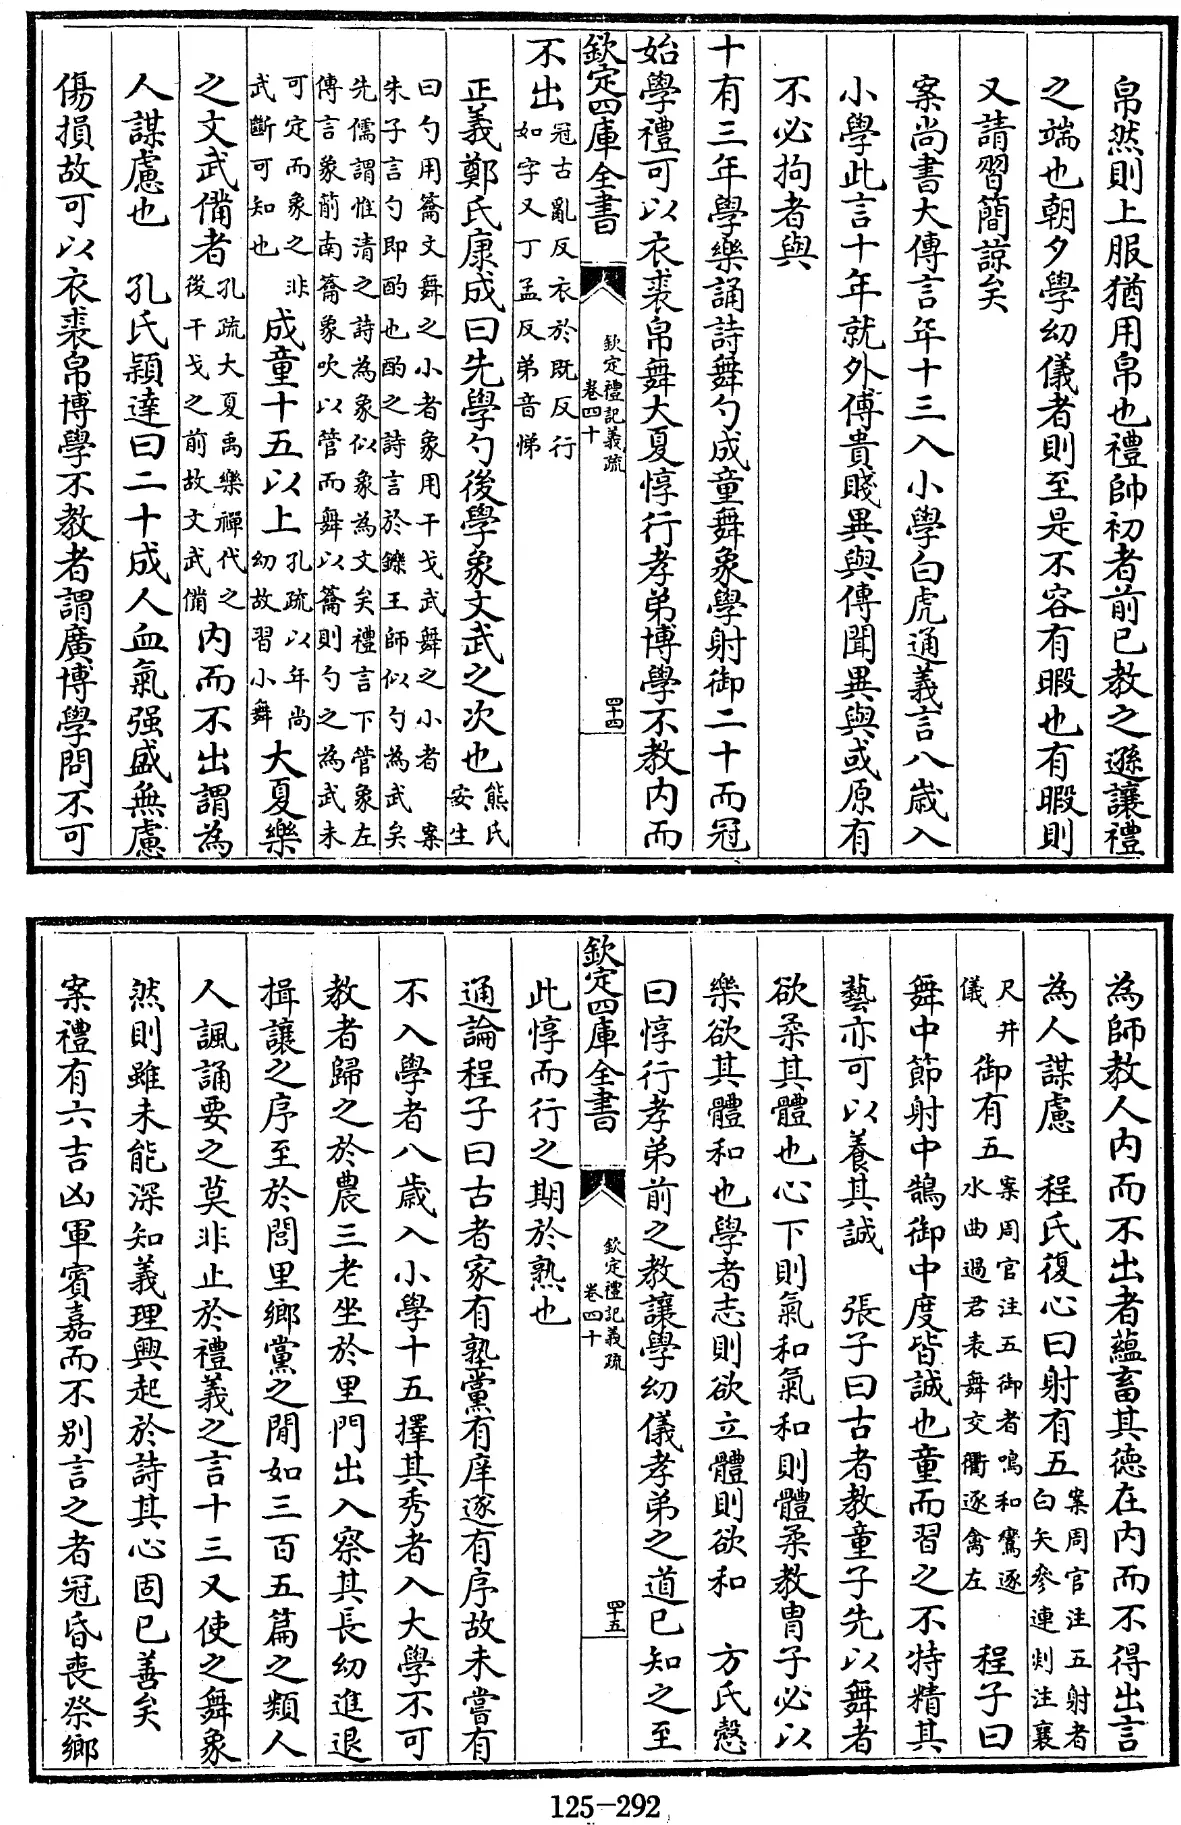 帛然則上服猶用帛也禮帥初者前已教之遜讓禮
之端也朝夕學幼儀者則至是不容有暇也有暇則
又請習簡諒矣
案尚書大傳言年十三入小學白虎通義言八歲入
小學此言十年就外傅貴賤異與傳聞異與或原有
不必拘者與
十有三年學樂誦詩舞勺成童舞象學射御二十而冠
始學禮可以衣裘帛舞大夏惇行孝弟博學不教内而
欽定四庫全書 欽定禮記義疏 卷四十 四十四
不出 冠古亂反衣於既反行 如字又丁孟反弟音悌
正義鄭氏康成曰先學勺後學象文武之次也 熊氏 安生
曰勺用籥文舞之小者象用干戈武舞之小者 案
朱子言勺即酌也酌之詩言於鑠王師似勺為武矣
先儒謂惟清之詩為象似象為文矣禮言下管象左
傳言象箾南籥象吹以管而舞以籥則勺之為武未
可定而象之非 武斷可知也 成童十五以上 孔疏以年尚 幼故習小舞 大夏樂
之文武備者 孔疏大夏禹樂禪代之 後干戈之前故文武備 内而不出謂為
人謀慮也 孔氏穎達曰二十成人血氣强盛無慮
傷損故可以衣裘帛博學不教者謂廣博學問不可
為師教人内而不出者蘊畜其德在内而不得出言
為人謀慮 程氏復心曰射有五 案周官注五射者 白矢參連剡注襄
尺井 儀 御有五 案周官注五御者鳴和鸞逐 水曲過君表舞交衢逐禽左 程子曰
舞中節射中鵠御中度皆誠也童而習之不特精其
藝亦可以養其誠 張子曰古者教童子先以舞者
欲柔其體也心下則氣和氣和則體柔教胄子必以
樂欲其體和也學者志則欲立體則欲和 方氏慤
曰惇行孝弟前之教讓學幼儀孝弟之道已知之至
欽定四庫全書 欽定禮記義疏 卷四十 四十五
此惇而行之期於熟也
通論程子曰古者家有塾黨有庠遂有序故未嘗有
不入學者八歲入小學十五擇其秀者入大學不可
教者歸之於農三老坐於里門出入察其長幼進退
揖讓之序至於閭里鄉黨之閒如三百五篇之類人
人諷誦要之莫非止於禮義之言十三又使之舞象
然則雖未能深知義理興起於詩其心固已善矣
案禮有六吉凶軍賓嘉而不别言之者冠昏喪祭鄉
125-292